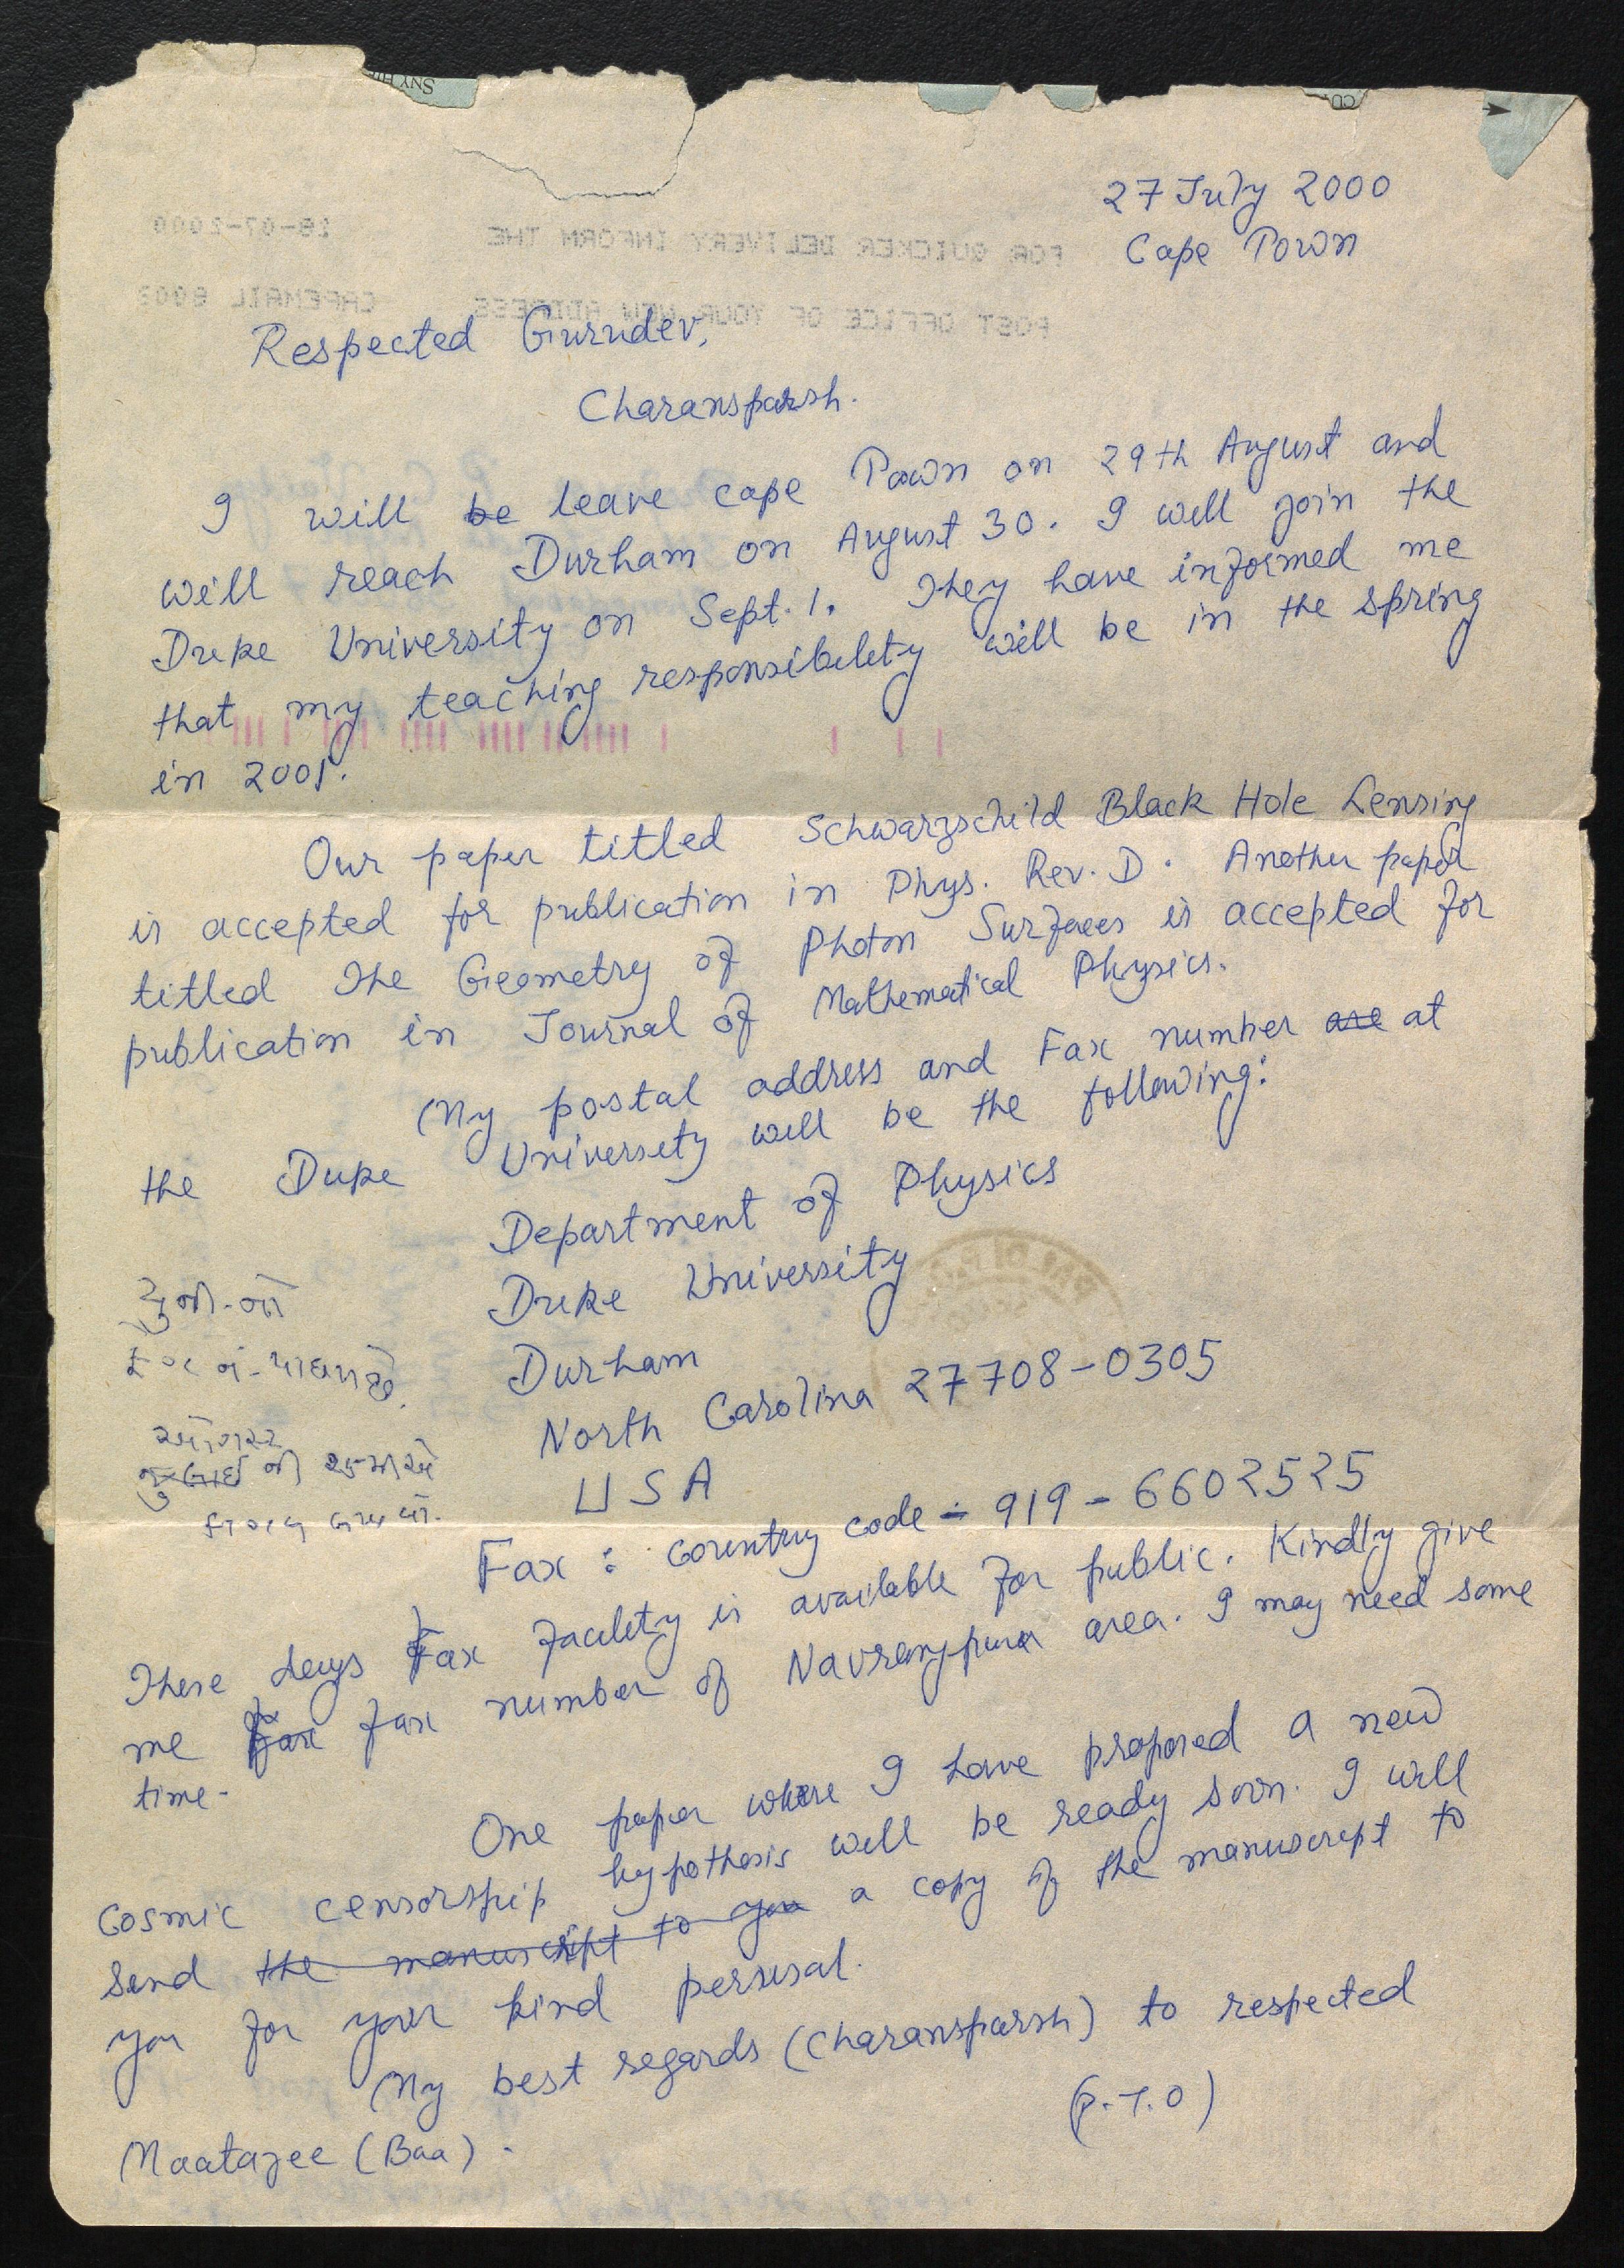 27 July 2000
Cape Town
Respected Gurudev,
Charansparsh.
I will be leave cape Town on 29th August and
will reach Durham on August 30. I will join the
Duke University on Sept. 1. They have informed me
that my teaching responsibility will be in the spring
in 2001.
Our paper titled Schwarzschild Black Hole Lensing
is accepted for publication in Phys. Rev. D. Another paper
titled The Geometry of Photon Surfaces is accepted for
publication in Journal of Mathematical Physics.
My postal address and Fax number are at
the Duke University will be the following:
Department of Physics
Duke University
Durham
North Carolina 27708-0305
USA
Fax : country code - 919 - 6602525
These days Fax facility is available for public. Kindly give
me Fax fax number of Navrangpura area. I may need some
time.
One paper where I have proposed a new
cosmic censorship hypothesis will be ready soon. I will
send the manuscript to you a copy of the manuscript to
you for your kind perusal.
My best regards (Charansparsh) to respected
Maatajee (Baa).
(P.T.O)